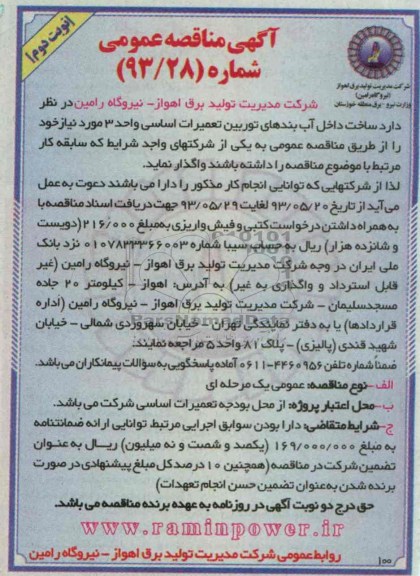 نوبت دوم
آگهی مناقصه عمومی
شماره (۹۳/۲۸)
شرکت مدیریت تولید برق اهواز
(نیروگاه رامین)
وزارت نیرو - برق منطقه خوزستان
شرکت مدیریت تولید برق اهواز- نیروگاه رامین در نظر
دارد ساخت داخل آب بندهای توربین تعمیرات اساسی واحد ۳ مورد نیاز خود
را از طریق مناقصه عمومی به یکی از شرکتهای واجد شرایط که سابقه کار
مرتبط با موضوع مناقصه را داشته باشند واگذار نماید.
لذا از شرکتهایی که توانایی انجام کار مذکور را دارا می باشند دعوت به عمل
می آید از تاریخ ۹۳/۰۵/۲۰ لغایت ۹۳/۰۵/۲۹ جهت دریافت اسناد مناقصه با
به همراه داشتن درخواست کتبی و فیش واریزی به مبلغ ۲۱۶/۰۰۰ (دویست
و شانزده هزار) ریال به حساب سیبا شماره ۰۱۰۷۸۳۳۳۶۶۰۰۳ نزد بانک
ملی ایران در وجه شرکت مدیریت تولید برق اهواز - نیروگاه رامین (غیر
قابل استرداد و واگذاری به غیر) به آدرس: اهواز - کیلومتر ۲۰ جاده
مسجدسلیمان - شرکت مدیریت تولید برق اهواز - نیروگاه رامین (اداره
قراردادها) یا به دفتر نمایندگی تهران - خیابان سهروردی شمالی - خیابان
شهید قندی (پالیزی) - پلاک ۸۱ واحد ۵ مراجعه نمایند.
ضمناً شماره تلفن ۴۴۶۰۹۵۶-۰۶۱۱ آماده پاسخگویی به سؤالات پیمانکاران می باشد.
الف -نوع مناقصه: عمومی یک مرحله ای
ب-محل اعتبار پروژه: از محل بودجه تعمیرات اساسی شرکت می باشد.
ج-شرایط متقاضی: دارا بودن سوابق اجرایی مرتبط، توانایی ارائه ضمانتنامه
به مبلغ ۱۶۹/۰۰۰/۰۰۰ (یکصد و شصت و نه میلیون) ریـال به عنوان
تضمین شرکت در مناقصه (همچنین ۱۰ درصد کل مبلغ پیشنهادی در صورت
برنده شدن به عنوان تضمین حسن انجام تعهدات)
حق درج دو نوبت آگهی در روزنامه به عهده برنده مناقصه می باشد.
www.raminpower.ir
روابط عمومی شرکت مدیریت تولید برق اهواز - نیروگاه رامین
۱۰۰